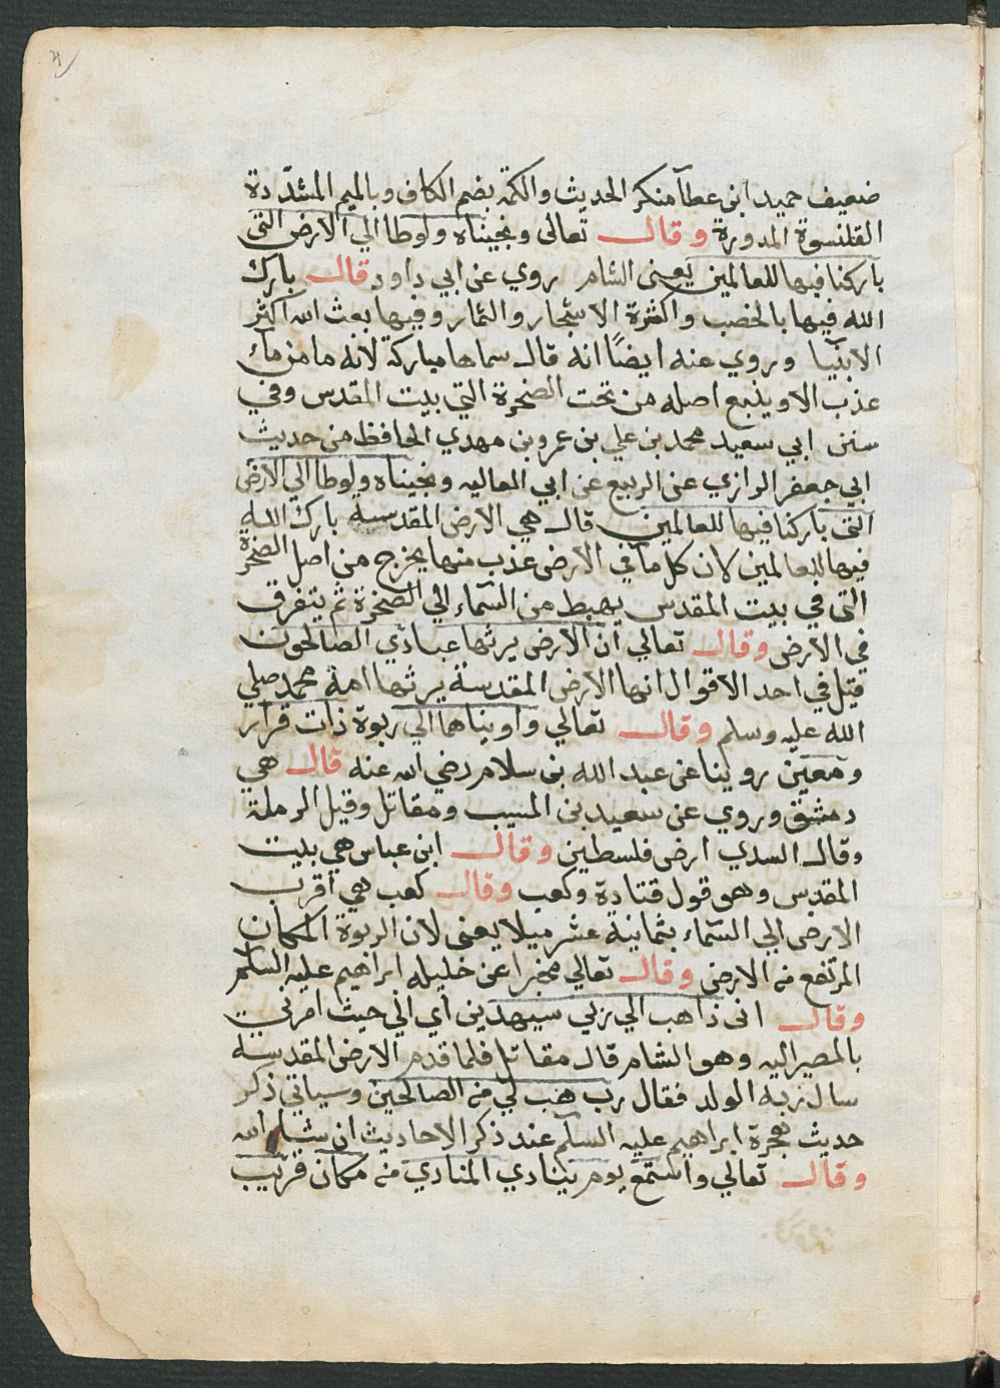 ضعيف حميد ابن عطآ منكر الحديث والكمة بضم الكاف وبالميم المشدّدة
القلنسوة المدورة وقال تعالى ونجيناه ولوطا الي الارض التى
باركنا فيها للعالمين يعنى الشام روي عن ابي داود قال بارك
الله فيها بالخصب واكثرة الاشجار والثمار وفيها بعث الله اكثر
الانبيآ وروي عنه ايضًا انه قال سماها مباركة لانه ما من مآء
عذب الا وينبع اصله من تحت الصخرة التي بيت المقدس وفي
سنن ابي سعيد محمد بن علي بن عمرو بن مهدي الحافظ من حديث
ابي جعفر الرازي عن الربيع عن ابي العاليه ونجيناه ولوطا الي الارض
التى باركنا فيها للعالمين قال هي الارض المقدسة بارك الله
فيها للعالمين لان كل مآ في الارض عذب منها يخرج من اصل الصخرة
التى في بيت المقدس يهبط من السّماء الي الصخرة ثم يتفرق
في الارض وقال تعالي ان الارض يرثها عبادي الصالحون
قيل في احد الاقوال انها الارض المقدسة يرثها امة محمد صلي
الله عليه وسلم وقال تعالي واويناهما الي ربوة ذات قرار
ومعين روينا عن عبد الله بن سلام رضي الله عنه قال هي
دمشق وروي عن سعيد بن المسيب ومقاتل وقيل الرملة
وقال السدي ارض فلسطين وقال ابن عباس هي بيت
المقدس وهو قول قتادة وكعب وقال كعب هي اقرب
الارض الي السّماء بثمانية عشر ميلا يعنى لان الربوة المكان
المرتفع من الارض وقال تعالي مخبرا عن خليله ابراهيم عليه السلام
وقال انى ذاهب الي ربي سيهدين أي الي حيث امرني
بالمصير اليه وهو الشام قال مقاتل فلما قدم الارض المقدسة
سال ربه الولد فقال رب هب لي من الصالحين وسياتي ذكر
حديث هجرة ابراهيم عليه السلم عند ذكر الاحاديث ان شاء الله
وقال تعالي واستمع يوم ينادي المنادي من مكان قريب